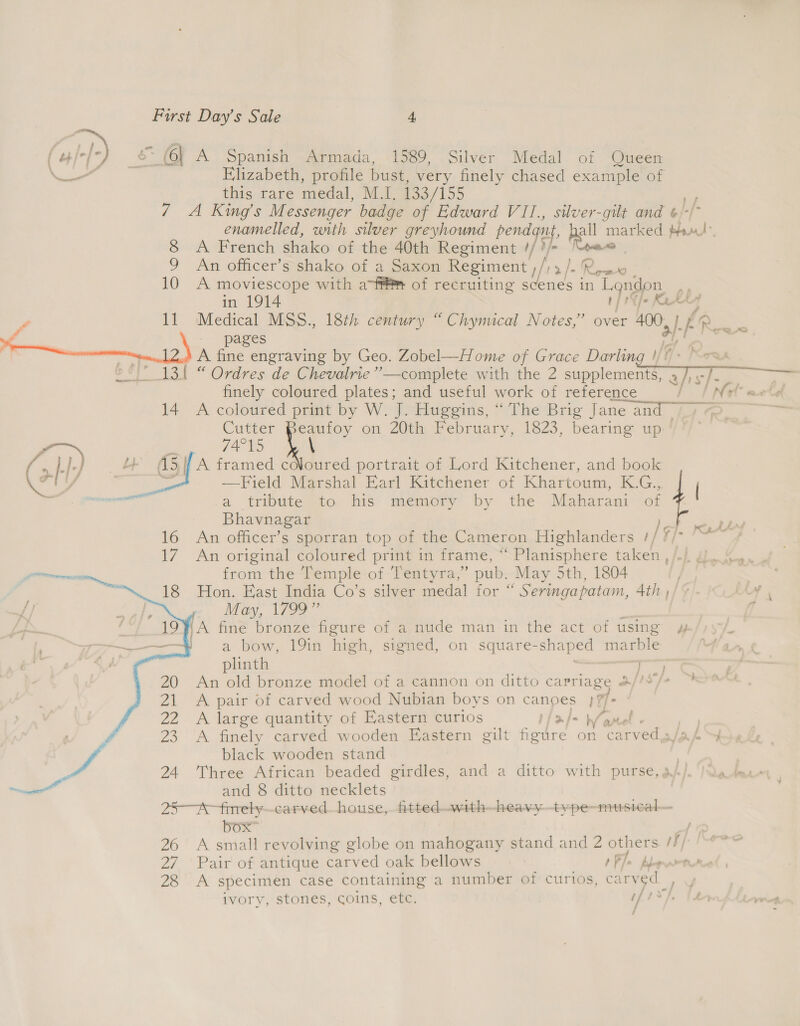 First Day's Sale 4
6 A Spanish Armada, 1589, Silver Medal of Queen
Elizabeth, profile bust, very finely chased example of
this rare medal, M.I. 133/155
7 A King's Messenger badge of Edward VII., silver-gilt and
enamelled, with silver greyhound pendant, hall marked
8 A French shako of the 40th Regiment
9 An officer's shako of a Saxon Regiment
10 A moviescope with a film of recruiting scenes in London
in 1914
11 Medical MSS., 18th century “Chymical Notes,” over 400
pages
12 A fine engraving by Geo. Zobel—Home of Grace Darling
13 “Ordres de Chevalrie”—complete with the 2 supplements,
finely coloured plates; and useful work of reference
14 A coloured print by W. J. Huggins, “The Brig Jane and
Cutter Beaufoy on 20th February, 1823, bearing up
74°15
15 A framed coloured portrait of Lord Kitchener, and book
—Field Marshal Earl Kitchener of Khartoum, K.G.,
a tribute to his memory by the Maharani of
Bhavnagar
16 An officer's sporran top of the Cameron Highlanders
17 An original coloured print in frame, “Planisphere taken
from the Temple of Tentyra,” pub. May 5th, 1804
18 Hon. East India Co's silver medal for “Seringapatam, 4th
May, 1799”
19 A fine bronze figure of a nude man in the act of using
a bow, 19in high, signed, on square-shaped marble
plinth
20 An old bronze model of a cannon on ditto carriage
21 A pair of carved wood Nubian boys on canoes
22 A large quantity of Eastern curios
23 A finely carved wooden Eastern gilt figure on carved
black wooden stand
24 Three African beaded girdles, and a ditto with purse,
and 8 ditto necklets
25 A finely carved house, fitted with heavy type musical
box
26 A small revolving globe on mahogany stand and 2 others
27 Pair of antique carved oak bellows
28 A specimen case containing a number of curios, carved
ivory, stones, coins, etc.